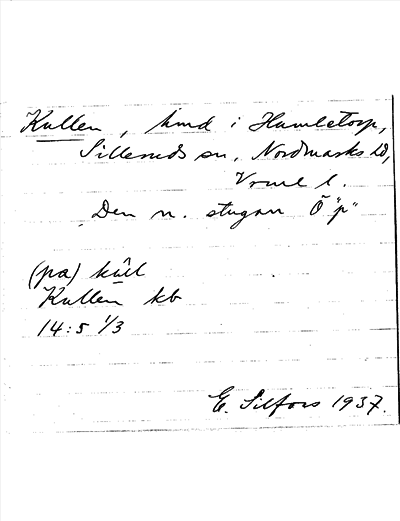 Kullen, hmd i Hamletorp,
Silleruds sn, Nordmarks hd,
Vrml l.
Den n. stugan Ö "p"
(pa) kûll
Kullen kb
14:5 1/3
E. Silfors 1937.